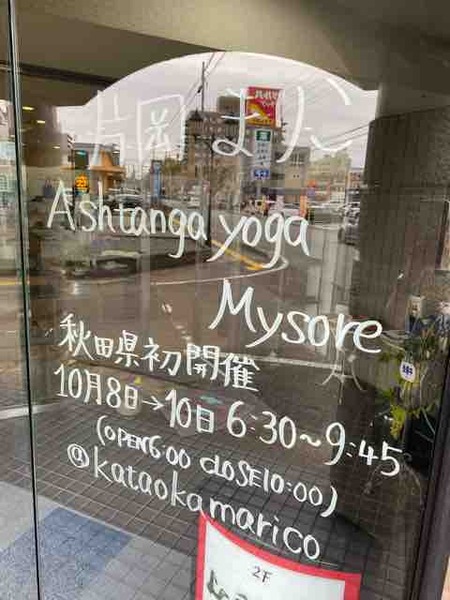 片岡 まりこ
Ashtanga yoga
Mysore
秋田県初開催
10月8日→10日 6:30~9:45
(OPEN6:00 CLOSE10:00)
@kataokamarico
2F